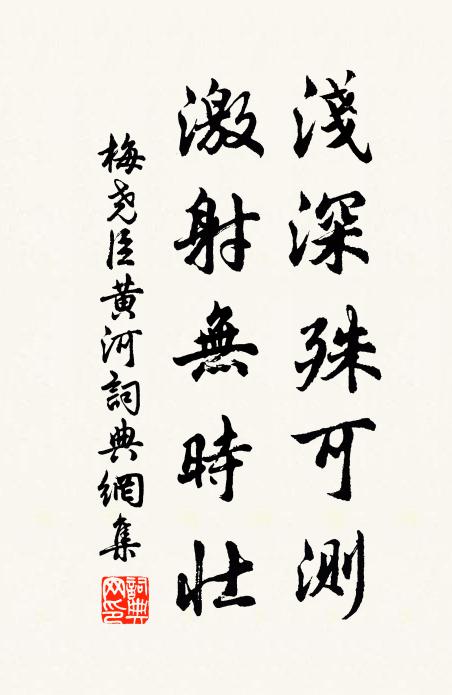 淺深殊可測
激射無時壯
梅堯臣黃河詞典網集
詞典网印